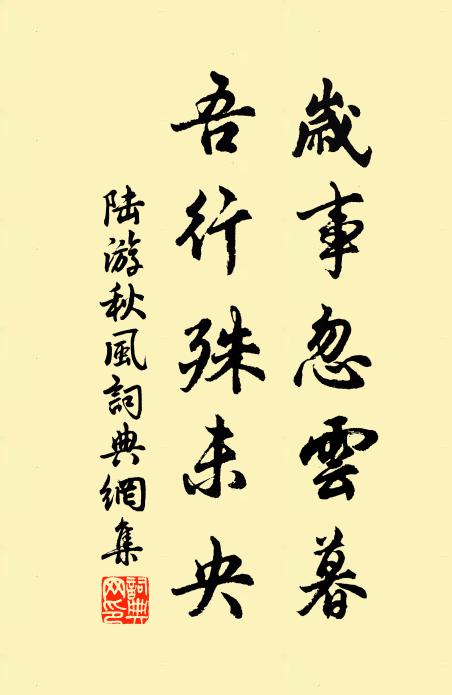 歲事忽雲暮
吾行殊未央
陆游秋風詞典網集
詞典网印